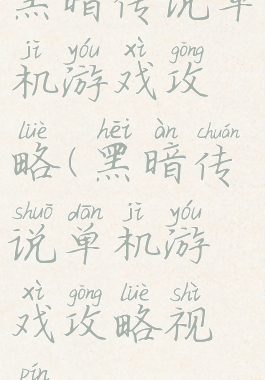 黑暗传说单
jī yóu xì gōng
机游戏攻
lüè hēi àn chuán
略(黑暗传
shuō dān jī yóu
说单机游
xì gōng lüè shì
戏攻略视
pín